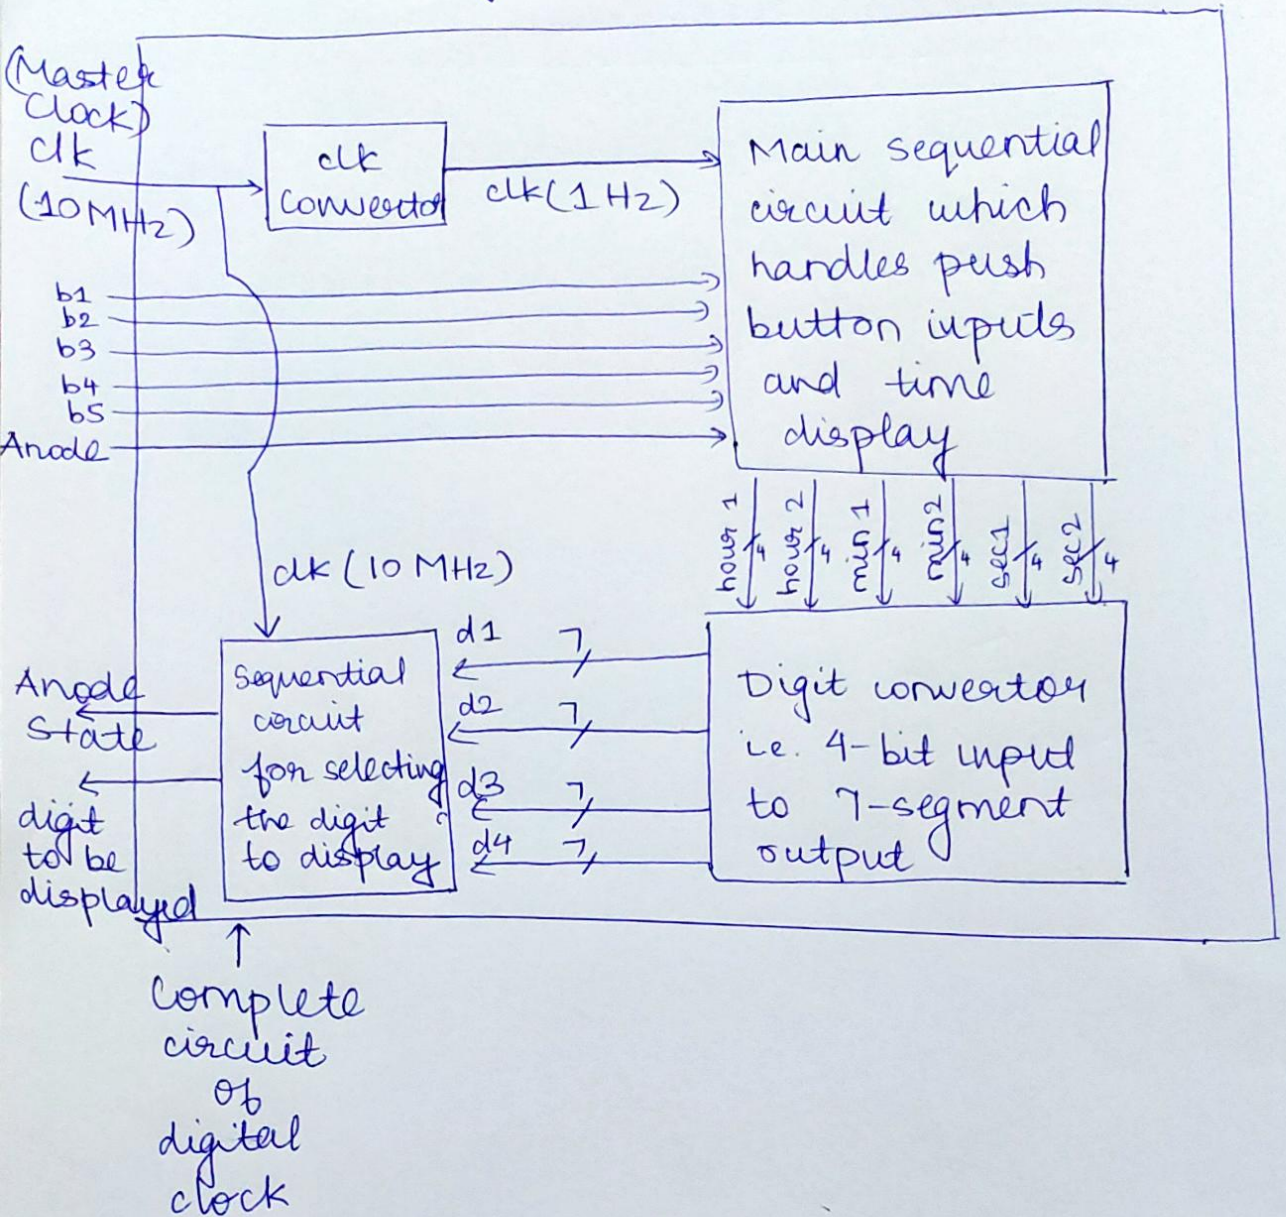 (Master
Clock)
clk
(10MHz)
clk
Convertor
clk(1Hz)
Main sequential
circuit which
handles push
button inputs
and time
display
b1
b2
b3
b4
b5
Anode
hour 1
4
hour 2
4
min 1
4
min2
4
sec1
4
sec2
4
clk (10 MHz)
d1 7
d2 7
d3 7
d4 7
Sequential
circuit
for selecting
the digit
to display
Digit convertor
i.e. 4-bit input
to 7-segment
output
Anode
State
digit
to be
displayed
Complete
circuit
of
digital
clock